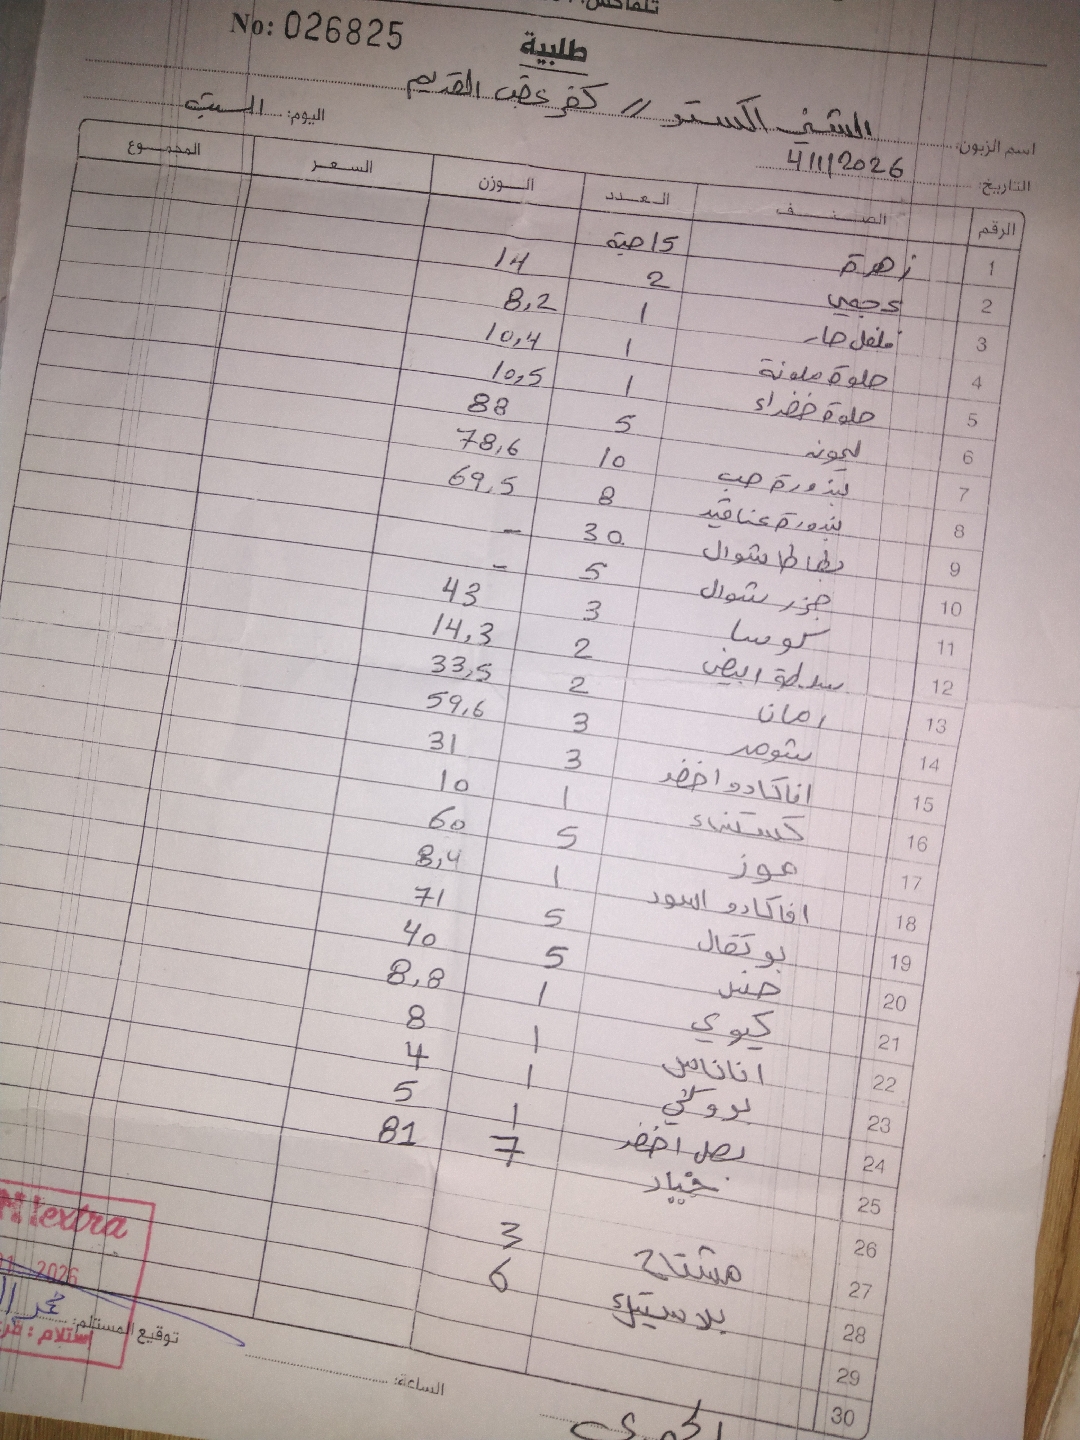 تلفاكس:
No: 026825
طلبية
اسم الزبون: الشني اكسترا // كفر عقب القديم
التاريخ: 4/1/2026 اليوم: السبت
الرقم الصنف العدد الوزن السعر المجموع
1 زهرة 15 حبة
2 عجمي 2 14
3 فلفل حار 1 8,2
4 حلوة ملونة 1 10,4
5 حلوة خضراء 1 10,5
6 ليمونه 5 88
7 بندورة حب 10 78,6
8 بندورة عناقيد 8 69,5
9 بطاطا شوال 30 -
10 جزر شوال 5 -
11 كوسا 3 43
12 سلطة ابيض 2 14,3
13 رمان 2 33,5
14 شومر 3 59,6
15 افاكادو اخضر 3 31
16 كستناء 1 10
17 موز 5 60
18 افاكادو اسود 1 8,4
19 برتقال 5 71
20 خس 5 40
21 كيوي 1 8,8
22 اناناس 1 8
23 بروكلي 1 4
24 بصل اخضر 1 5
25 خيار 7 81
26
27 مشتاح 3
28 بلاستيك 6
29
30
extra
2026
توقيع المستلم:
إستلام :
الساعة: